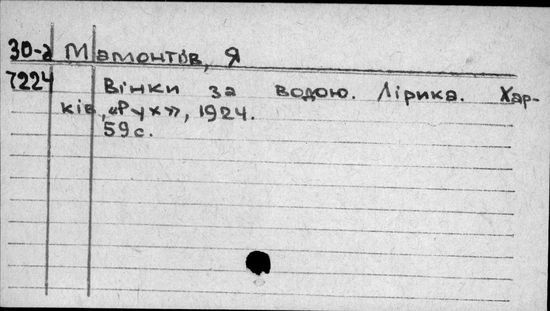 30-2 Мамонтів, Я
7224 Вінки за водою. Лірика. Хар-
ків, «Рух», 1924.
59с.